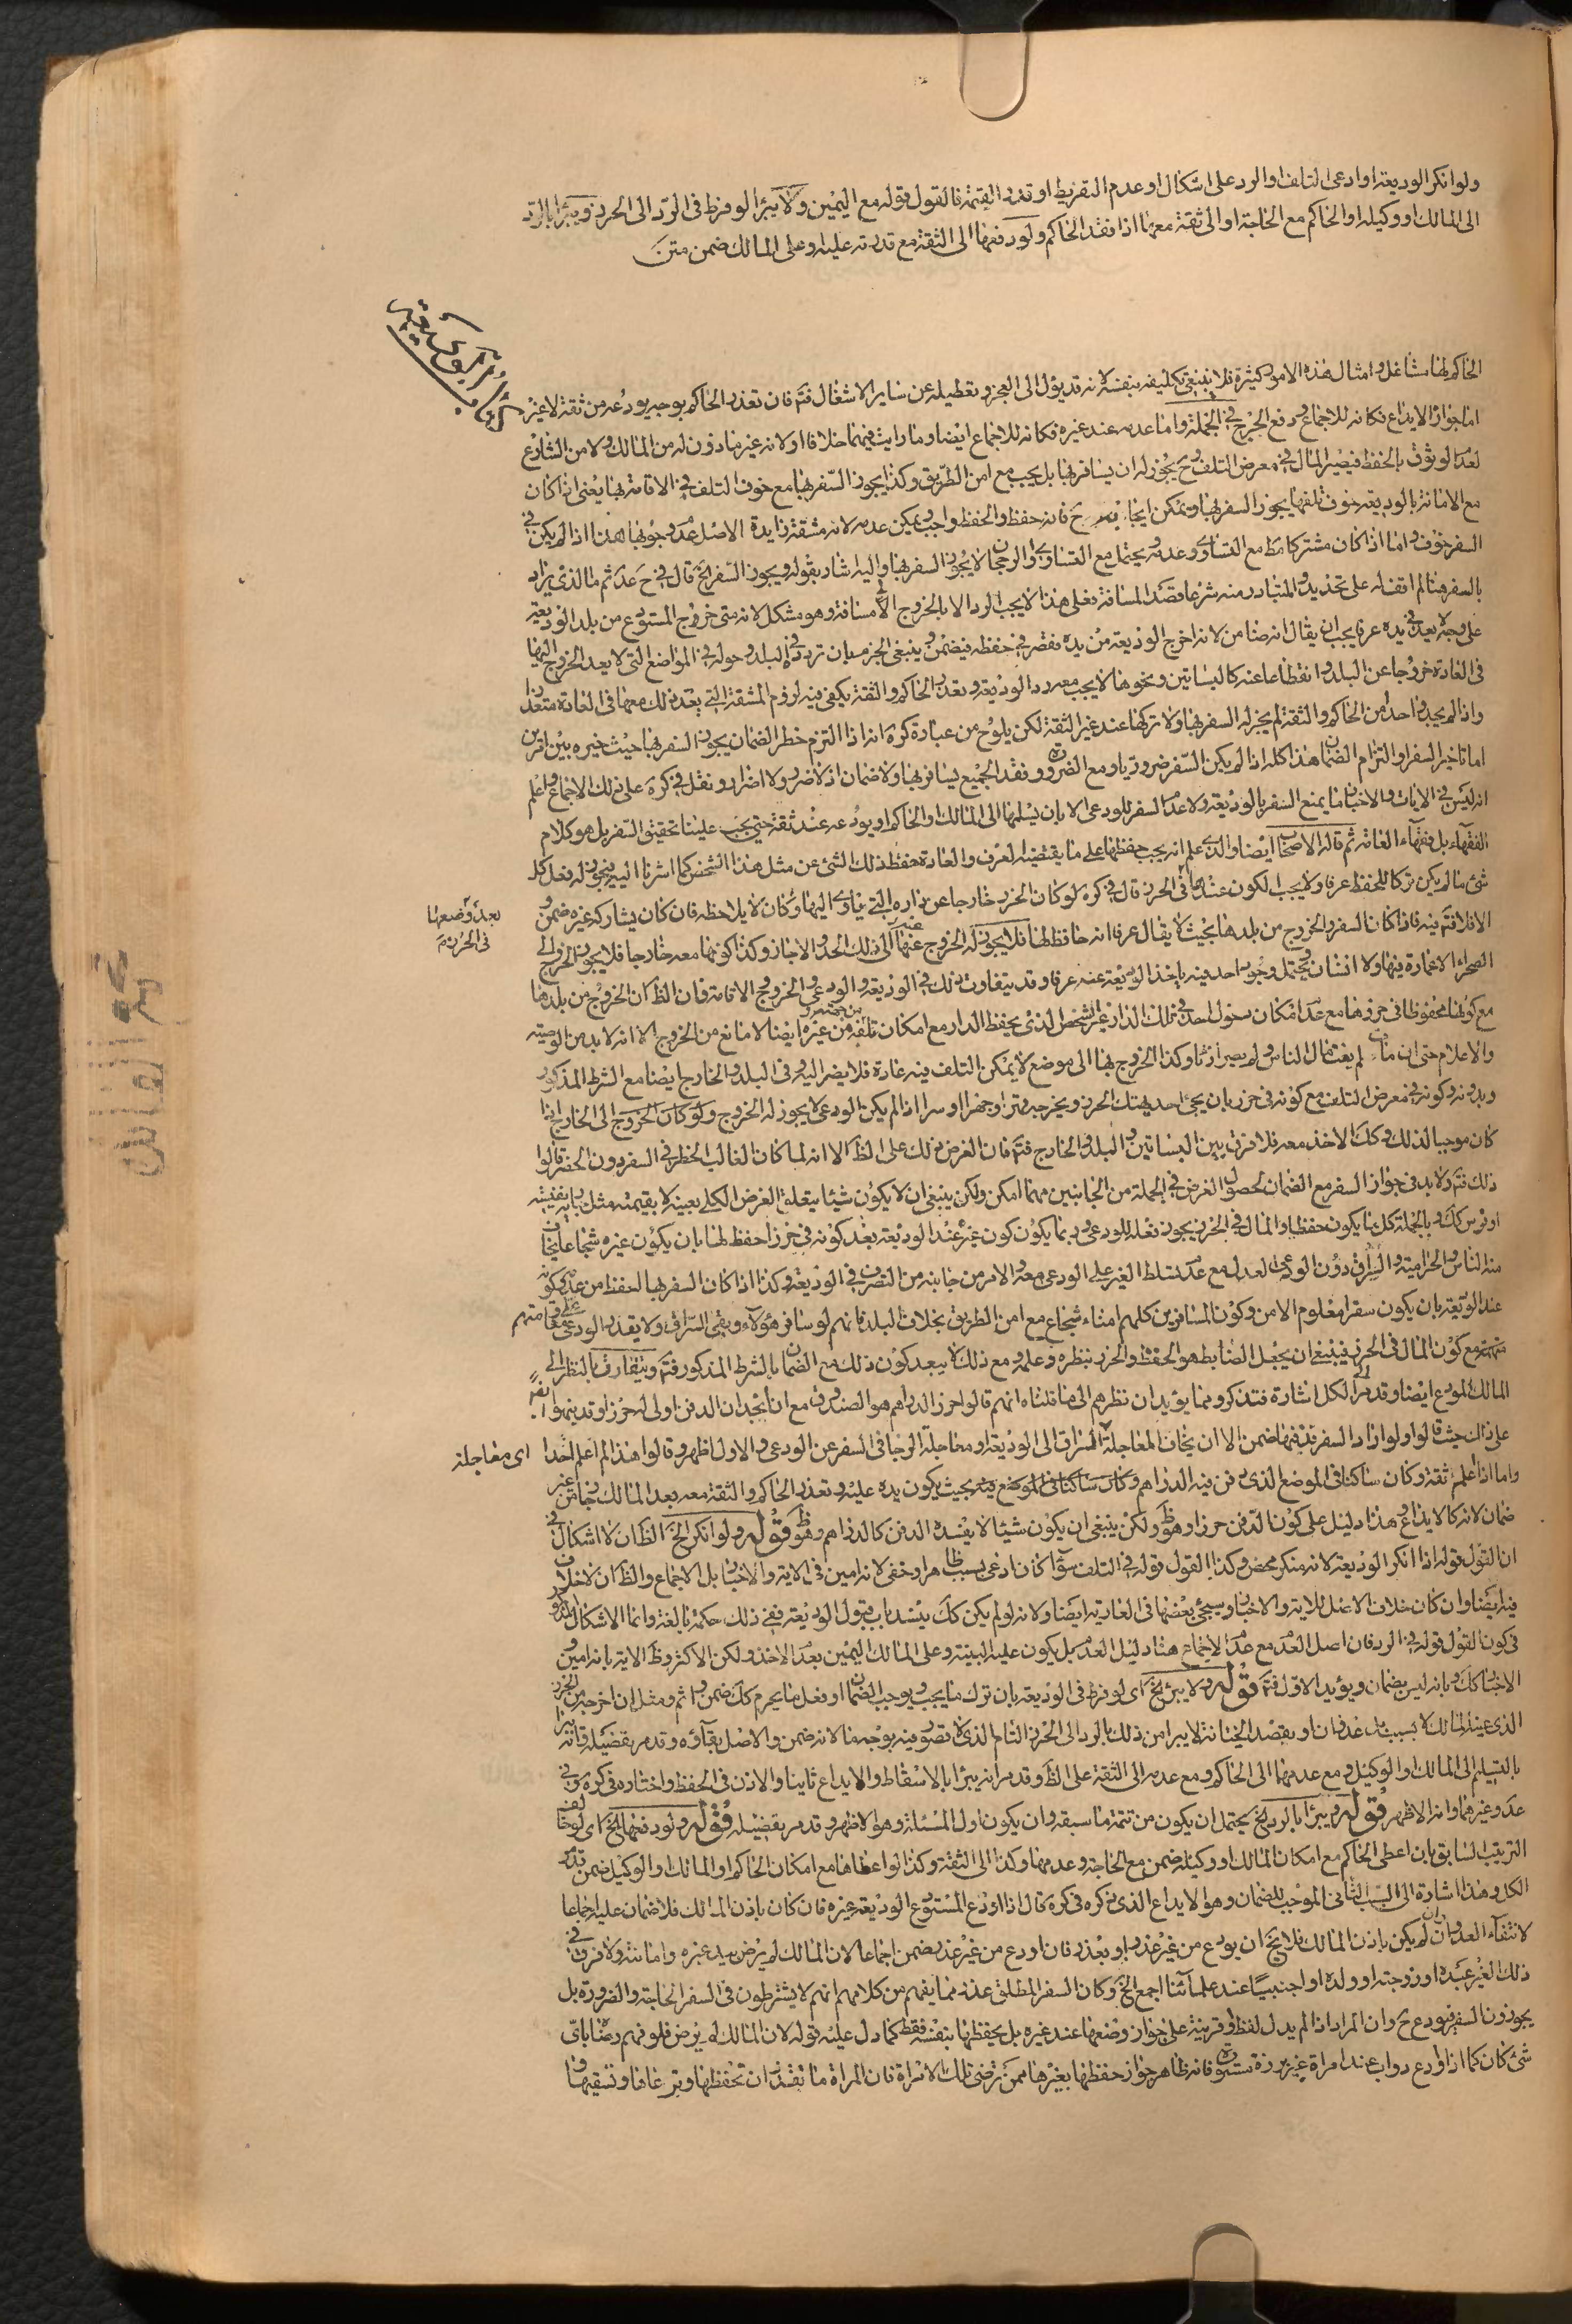 ولو انكر الوديعة او ادعى التلف او الرد على اشكال او عدم التفريط او قدر القيمة فالقول قوله مع اليمين ولا يبرأ لو فرط فى الرد الى الحرز ويبرأ بالرد
الى المالك او وكيله او الحاكم مع الحاجة او الى ثقة معها اذا فقد الحاكم ولو دفعها الى الثقة مع قدرته عليه وعلى المالك ضمن متن
كتاب الوديعة
الحاكم لها مشاغل وامثال هذه الامور كثيرة فلا ينبغى تكليفه بنفسه لانه قد يؤل الى العجز وتعطيله عن ساير الاشغال فتم فان تعذر الحاكم بوجه يودعه من ثقة لا غير
اما جواز الايداع فكانه للاجماع ودفع الحرج فى الجملة واما عدمه عند غيره فكانه للاجماع ايضا وما رايت فيهما خلافا ولانه غير ماذون له من المالك ولا من الشارع
لعدم الوثوق بالحفظ فيصير المال فى معرض التلف وح يجوز له ان يسافر بها بل يجب مع امن الطريق وكذا يجوز السفر بها مع خوف التلف فى الاقامة بها يعنى اذا كان
مع الامانة بالوديعة خوف تلفها يجوز السفر بها ويمكن ايجابه ح فانه حفظ والحفظ واجب ويمكن عدمه لانه مشقة زايدة الاصل عدم وجوبها هذا اذا لم يكن فى
السفر خوف واما اذا كان مشتركا مط مع التساوى وعدمه ويحتمل مع التساوى والرجحان لا يجوز السفر بها واليه اشار بقوله ويجوز السفر الخ قال فى ح عد ثم ما الذى يراد
بالسفر هنا لم اقف له على تحديد والمتبادر منه شرعا قصد المسافة فعلى هذا لا يجب الرد الا بالخروج الى مسافة وهو مشكل لانه متى خروج المستودع من بلد الوديعة
على وجه لا يعد فى يده عرفا يجب ان يقال انه ضامن لانه اخرج الوديعة من يده فقصر فى حفظه فيضمن وينبغى الجزم بان تردده فى البلد وحوله فى المواضع التى لا يعد الخروج اليها
فى العادة خروجا عن البلد وانقطاعا عنه كالبساتين ونحوها لا يجب معه رد الوديعة وتعذر الحاكم والثقة يكفى فيه لزوم المشقة التى بعد ذلك معها فى العادة متعذرا
واذا لم يجد واحدا من الحاكم والثقة لم يجز له السفر بها ولا تركها عند غير الثقة لكن يلوح من عبارة كرة انه اذا التزم خطر الضمان يجوز السفر بها حيث خيره بين امرين
اما تاخير السفر او التزام الضمان هذا كله اذا لم يكن السفر ضروريا ومع الضرورة وفقد الجميع يسافر بها ولا ضمان اذ لا ضرر ولا اضرار ونقل فى كرة على ذلك الاجماع واعلم
انه ليس فى الايات والاخبار ما يمنع السفر بالوديعة ولا عدم السفر للودعى الا بان يسلمها الى المالك او الحاكم او يودعه عند ثقة حتى يجب علينا تحقيق السفر بل هو كلام
الفقهاء بل فقهاء العامة ثم قاله الاصحاب ايضا والذى علم انه يجب حفظها على ما يقتضيه العرف والعادة حفظ ذلك الشئ عن مثل هذا الشخص كما اشرنا اليه فيجوز له فعل كل
شئ ما لم يكن تركا للحفظ عرفا ولا يجب الكون عندها فى الحرز قال فى كرة لو كان الحرز خارجا عن داره التى ياوى اليها وكان لا يلاحظه فان كان يشاركه غيره ضمن و
بعد وضعها
فى الحرز م
الا فلا فتم فيه فاذا كان السفر والخروج من بلدها بحيث لا يقال عرفا انه حافظ لها فلا يجوز له الخروج عنها الى ذلك الحد والا جاز وكذا كونها معه خارجا فلا يجوز الخروج الى
الصحراء لا عمارة فيها ولا انسان ويحتمل وجود احد فيه ياخذ الوديعة عنه عرفا وقد يتفاوت ذلك فى الوديعة والودعى والخروج الاقامة فان الظ كان الخروج من بلدها
مع كونها محفوظا فى حرزها مع عدم امكان دخول احد فى تلك الدار غير الشخص الذى يحفظ الدار مع امكان تلفه من غيره ايضا لا مانع من الخروج الا انه لا بد من الوصية
والاعلام حتى ان مات لم يفت مال الناس ولم يصر ارثا وكذا الخروج بها الى موضع لا يمكن التلف فيه عادة فلا يضر اليه وفى البلد والخارج ايضا مع الشرط المذكور
وبدونه وكونه فى معرض التلف مع كونه فى حرز بان يجئ احد يهتك الحرز ويخرجه قهرا وجهرا او سرا اذا لم يكن الودعى لا يجوز له الخروج ولو كان الخروج الى الخارج ايضا
كان موجبا لذلك وكك الاخذ معه فلا فرق بين البساتين والبلد والخارج فتم فان الغرض ذلك على الظ الا انه لما كان الغالب الخطر فى السفر دون الحضر قالوا
ذلك فتم ولا بد فى جواز السفر مع الضمان لحصول الغرض فى الجملة من الجانبين مهما امكن ولكن ينبغى ان لا يكون شيئا يتعلق الغرض الكلى بعينه لا بقيمته مثل دابة نفيسة
او فرس كك وبالجملة كل ما يكون حفظا والمال فى الحرز يجوز نقله للودعى وربما يكون كون غيره عند الوديعة بعد كونه فى حرز احفظ لها بان يكون غيره شجاعا يخاف
منه الناس والحرامية والسراق دون الودعى العدل مع عدم تسلط الغير على الودعى معه والامن من جانبه من التصرف فى الوديعة وكذا اذا كان السفر بها احفظ من عدم كونه
عند الوديعة بان يكون سفرا معلوم الامن وكون المسافرين كلهم امناء شجاع مع امن الطريق بخلاف البلد فانهم لو سافر هؤلاء وبقى السراق ولا يقدر الودعى على مقاومتهم
فتهمته مع كون المال فى الحرز فينبغى ان يجعل الضابط هو الحفظ والحرز بنظره وعلمه ومع ذلك لا يبعد كون ذلك مع الضمان بالشرط المذكور فتم ويتفاوت بالنظر الى
المالك المودع ايضا وقد مر الى الكل اشارة فتذكر ومما يؤيد ان نظرهم الى ما قلناه انهم قالوا حرز الدراهم هو الصندوق مع ان نجد ان الدفن اولى له حرزا وقد نبهوا ايضا
على ذلك حيث قالوا ولو اراد السفر فدفنها ضمن الا ان يخاف المعاجلة اى معاجلة السراق الى الوديعة او معاجلة الرجا فى السفر عن الودعى والاول اظهر وقالوا هذا لم اعلم احدا
اى معاجلة
واما اذا علم ثقة وكان ساكنا فى الموضع الذى دفن فيه الدراهم وكان ساكنا فى الموضع فيه بحيث يكون يده عليه وتعذر الحاكم والثقة معه بعد المالك جاز من غير
ضمان لانه كالايداع هذا دليل على كون الدفن حرزا وهو ظ ولكن ينبغى ان يكون شيئا لا يفسده الدفن كالدراهم وهو ظ قوله ولو انكر الخ الظ ان لا اشكال فى
ان القول قوله اذا انكر الوديعة لانه منكر محض وكذا القول قوله فى التلف سواء كان ادعى بسبب ظاهر او خفى لانه امين فى الاية والاخبار بل الاجماع والظ ان لا خلاف
فيه ايضا وان كان خلاف الاصل للاية والاخبار وسيجئ بعضها فى العارية ايضا ولانه لو لم يكن كك ينسد باب قبول الوديعة ففى ذلك حكمة بالغة وانما الاشكال المذكور
فى كون القول قوله فى الرد فان اصل العدم مع عدم الاجماع هنا دليل العدم بل يكون عليه البينة وعلى المالك اليمين بعدم الاخذ ولكن الاكثر وظ الاية بانه امين و
الاخبار كك وبانه ليس بضمان ويؤيد الاول فتم قوله ولا يبرئ الخ اى لو فرط فى الوديعة بان ترك ما يجب ويوجب الضمان او فعل ما يحرم كك ضمن واثم ومثل ان اخرجه من الحرز
الذى عينه المالك لا بسبب بل عدوان او بقصد الخيانة لا يبرأ من ذلك بالرد الى الحرز التام الذى لا تصور فيه بوجه ما لانه ضمن والاصل بقاؤه وقد مر بفضيله فانه يبرأ
بالتسليم الى المالك او الوكيل ومع عدمهما الى الحاكم ومع عدمه الى الثقة على الظ وقد مر انه يبرأ بالاسقاط والايداع ثانيا والاذن فى الحفظ واختاره فى كرة وفى
عد وغيرهما وانه الاظهر قوله ويبرأ بالرد الخ يحتمل ان يكون من تتمة ما سبقه وان يكون اول المسئلة وهو الاظهر وقد مر بفضيله قوله ولو دفعها الخ اى لو خالف
الترتيب السابق بان اعطى الحاكم مع امكان المالك او وكيله ضمن مع الحاجة وعدمها وكذا الى الثقة وكذا لو اعطاها مع امكان الحاكم او المالك او الوكيل ضمن تدبر
الكل وهذا اشارة الى السبب الثانى الموجب للضمان وهو الايداع الذى ذكره فى كرة قال اذا اودع المستودع الوديعة غيره فان كان باذن المالك فلا ضمان عليه اجماعا
لانتفاء العدوان وان لم يكن باذن المالك فلا يخ ان يودع من غير عذر او بعذر فان اودع من غير عذر ضمن اجماعا لان المالك لم يرض بيد غيره وامانته ولا فرق فى
ذلك الغير عبده او زوجته او ولده او اجنبيا عند علمائنا اجمع الخ وكان السفر المطلق عذر مما يفهم من كلامهم انهم لا يشترطون فى السفر الحاجة والضرورة بل
يجوزون السفر فيودع ح وان المراد اذا لم يدل لفظ او قرينة على جواز وضعها عند غيره بل يحفظها بنفسه فقط كما دل عليه قوله لان المالك لم يرض فلو فهم رضا باى
شئ كان كما اذا اودع دواب عند امراة غير برزة مستورة فانه ظاهر جواز حفظها بغيرها ممن ترضى تلك الامراة فان المراة ما تقدر ان تحفظها وترعاها وتسقيها و